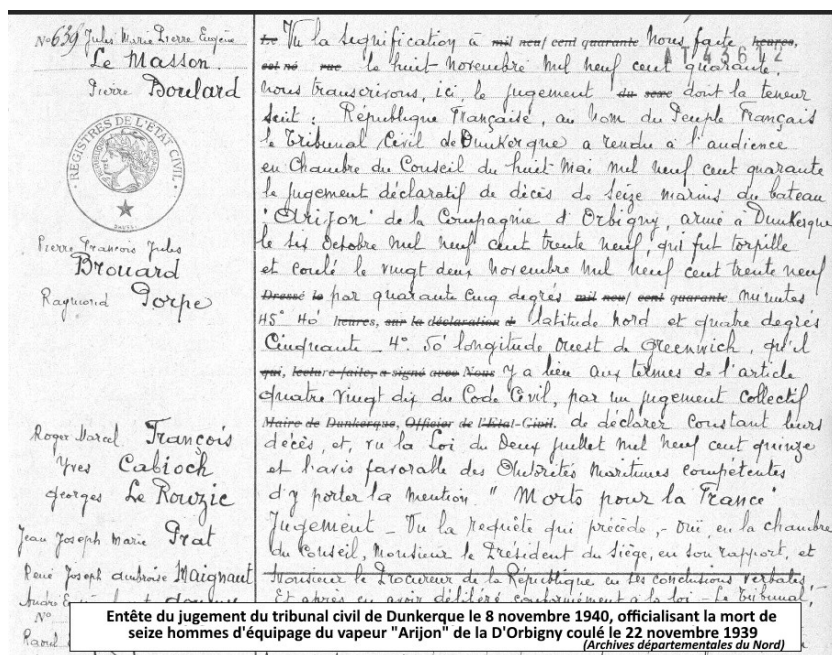 N° 639 Jules Marie Pierre Eugène
Le Masson.
Pierre Boulard
REGISTRES DE L'ETAT CIVIL
Pierre François Jules
Brouard
Raymond Porpe
Roger Marcel François
Yves Cabioch
Georges Le Rouzic
Jean Joseph Marie Prat
René Joseph Ambroise Maignaut
N°
Raoul
Le Vu la signification à mil neuf cent quarante Nous faite heures,
est né rue le huit novembre mil neuf cent quarante,
nous transcrivons, ici, le jugement du sexe dont la teneur
suit : République Française, au nom du Peuple Français
le Tribunal Civil de Dunkerque a rendu à l'audience
en Chambre du Conseil du huit Mai mil neuf cent quarante
le jugement déclaratif de décès de seize marins du bateau
"Arijon" de la Compagnie d'Orbigny, armé à Dunkerque
le six Octobre mil neuf cent trente neuf, qui fut torpillé
et coulé le vingt deux Novembre mil neuf cent trente neuf
Dressé le par quarante cinq degrés mil neuf cent quarante minutes
45° 40' heures, sur la déclaration d latitude Nord et quatre degrés
Cinquante _ 4° 50' longitude Ouest de Greenwich, qu'il
qui, lecture faite, a signé avec Nous y a lieu aux termes de l'article
quatre vingt dix du Code Civil, par un jugement collectif
Maire de Dunkerque, Officier de l'Etat-Civil. de déclarer constant leurs
décès, et, vu la Loi du Deux juillet mil neuf cent quinze
et l'avis favorable des Autorités Maritimes compétentes
d'y porter la mention "Morts pour la France"
Jugement _ Vu la requête qui précède, - Ouï, en la chambre
du Conseil, Monsieur le Président du Siège, en son rapport, et
Monsieur le Procureur de la République en ses conclusions verbales,
Et après en avoir délibéré conformément à la loi - Le Tribunal,
Entête du jugement du tribunal civil de Dunkerque le 8 novembre 1940, officialisant la mort de
seize hommes d'équipage du vapeur "Arijon" de la D'Orbigny coulé le 22 novembre 1939
(Archives départementales du Nord)